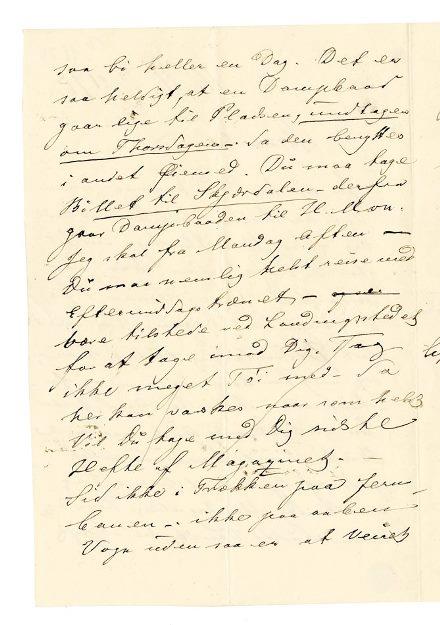 saa bi heller en Dag. Det er
saa heldigt, at en Dampbaad
gaar lige til Pladsen, undtagen
om Thorsdagen – da den benyttes
i andet Øiemed. Du maa tage
Billet til Skjærdalen – derfra
gaar Dampbaaden til H.Mon.
Jeg skal fra Mandag Aften –
Du maa nemlig helst reise med
Eftermiddagstrænet, –
være tilstede ved Landingsstedet
for at tage imod Dig. Tag
ikke meget Tøi med – Da
her kan vaskes naar som helst
Vil Du tage med Dig sidste
Hefte af Magazinet. –
Sid ikke i Trækken paa Jern-
banen – ikke paa aaben
Vogn uden saa er at Veiret